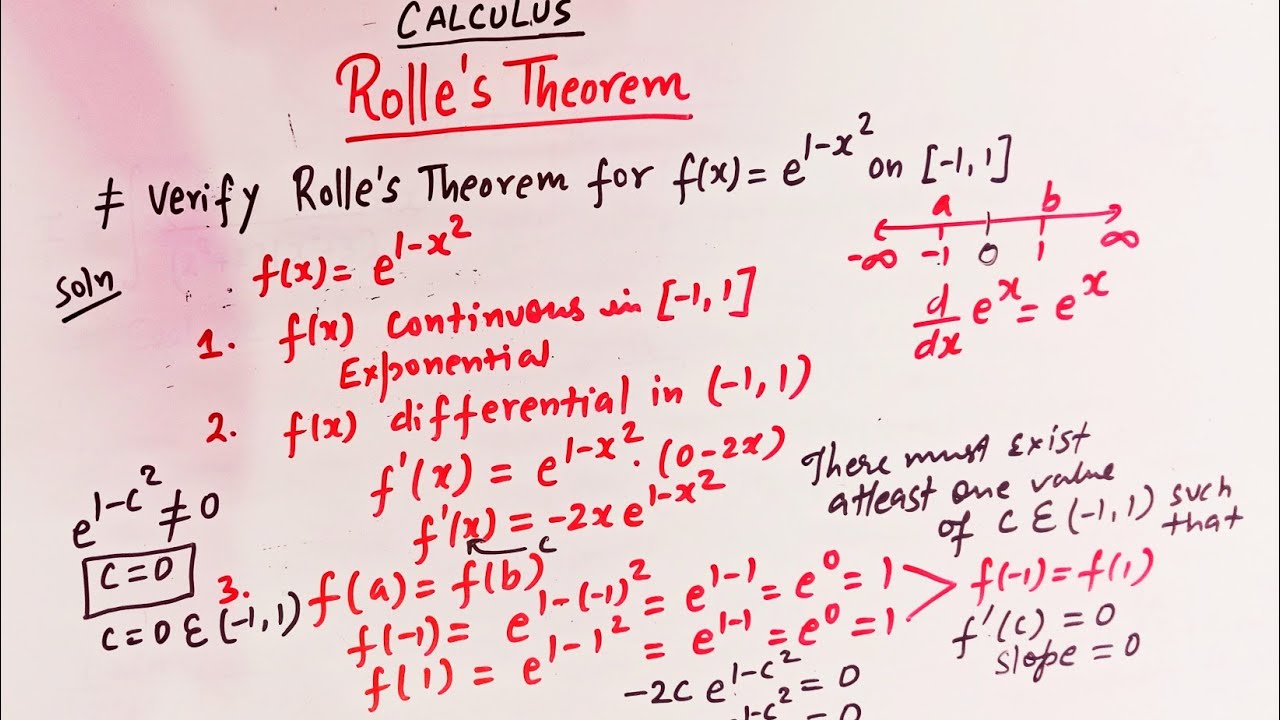 CALCULUS
Rolle's Theorem
≠ Verify Rolle's Theorem for f(x) = e^{1-x^2} on [-1, 1]
a b
-∞ -1 0 1 ∞
d/dx e^x = e^x
Soln
f(x) = e^{1-x^2}
1. f(x) continuous in [-1, 1]
Exponential
2. f(x) differential in (-1, 1)
f'(x) = e^{1-x^2} . (0-2x)
f'(x) = -2x e^{1-x^2}
c
There must exist
atleast one value
of C Ɛ (-1, 1) such
that
3. f(a) = f(b)
f(-1) = e^{1-(-1)^2} = e^{1-1} = e^0 = 1
f(1) = e^{1-1^2} = e^{1-1} = e^0 = 1
f(-1) = f(1)
f'(c) = 0
slope = 0
-2c e^{1-c^2} = 0
e^{1-c^2} = 0
e^{1-c^2} ≠ 0
C = 0
C = 0 Ɛ (-1, 1)